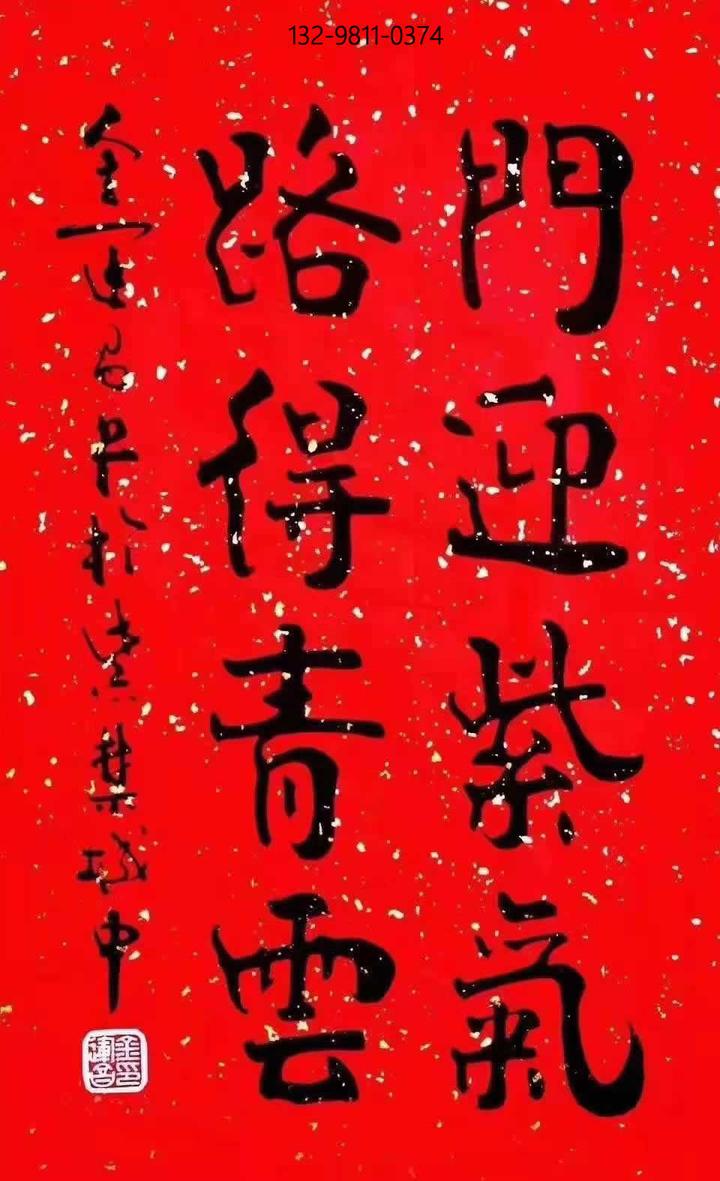 132-9811-0374
門迎紫氣
路得青雲
金運昌平於紫禁城中